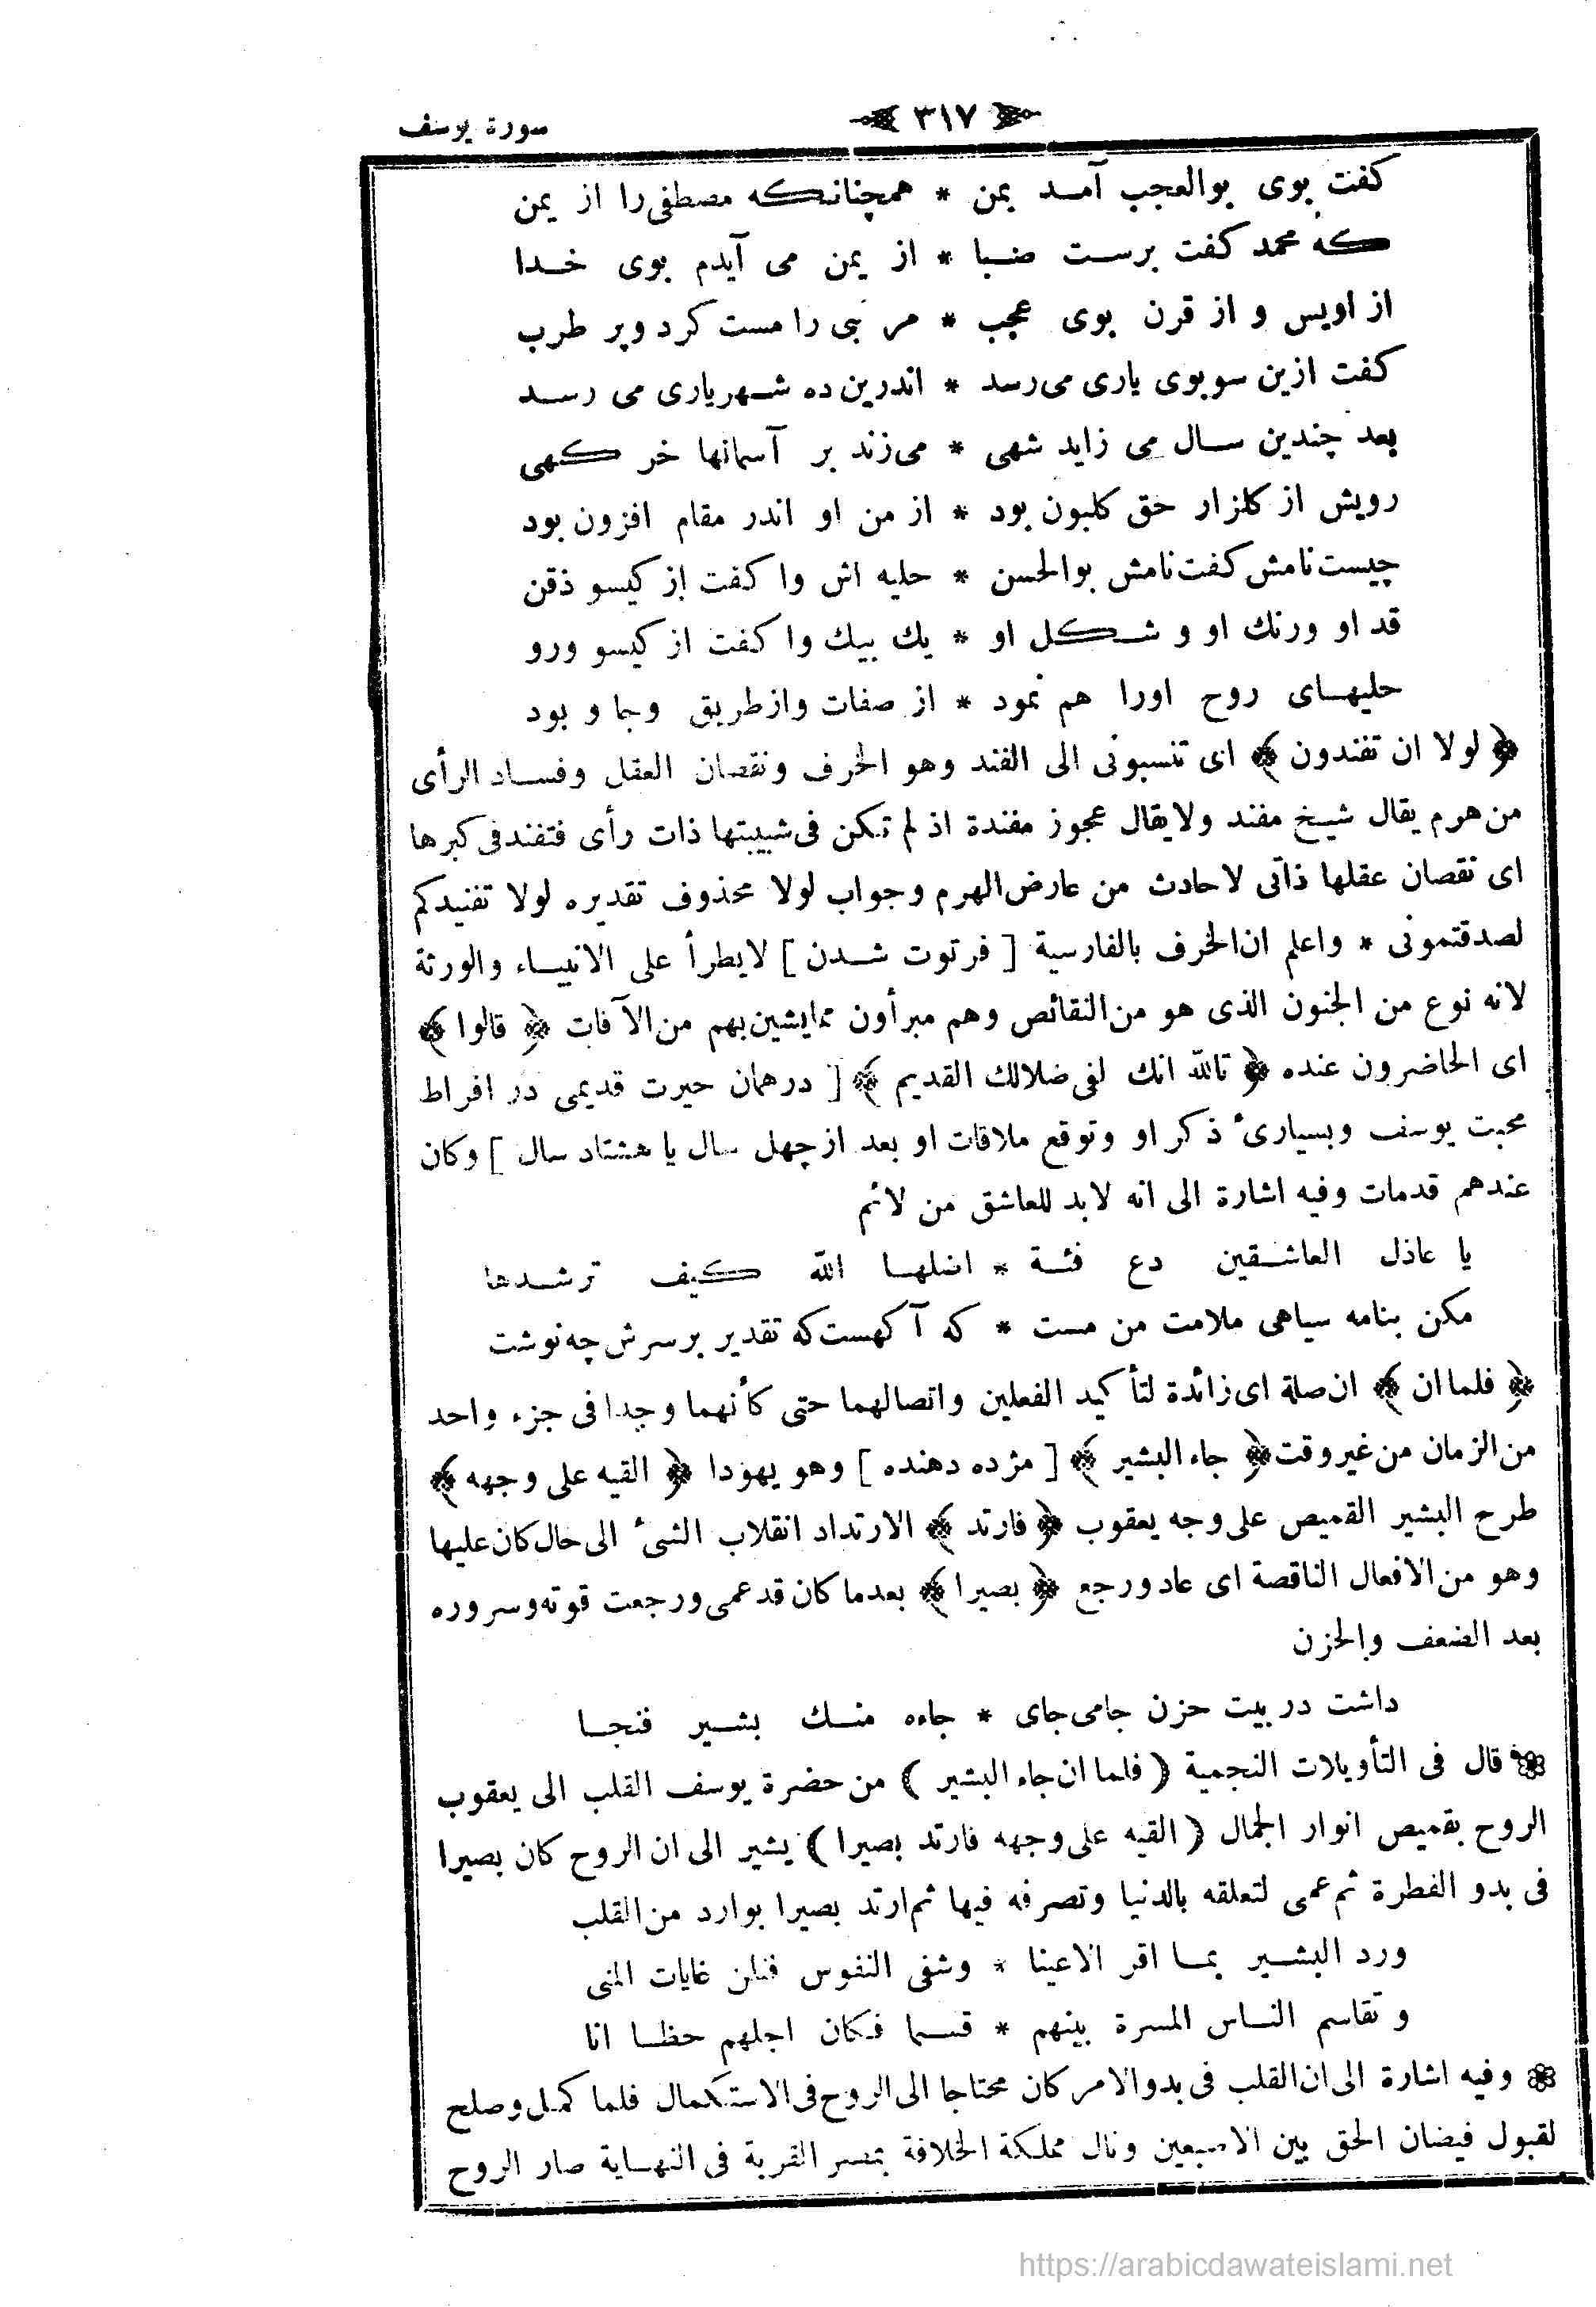 سورة يوسف
﴿ ٣١٧ ﴾
كفت بوى بوالعجب آمد بمن * همچنانكه مصطفى را از يمن
كه محمد كفت برست صبا * از يمن مى آيدم بوى خدا
از اويس و از قرن بوى عجب * مر نبى را مست كرد وپر طرب
كفت ازين سو بوى يارى مى رسد * اندرين ده شهريارى مى رسد
بعد چندين سال مى زايد شهى * مى زند بر آسمانها خركهى
رويش از كلزار حق كلبون بود * از من او اندر مقام افزون بود
چيست نامش كفت نامش بوالحسن * حليه اش وا كفت از كيسو ذقن
قد او ورنك او و شكل او * يك بيك وا كفت از كيسو ورو
حليهاى روح اورا هم نمود * از صفات واز طريق وجا و بود
﴿ لولا ان تفندون ﴾ اى تنسبونى الى الفند وهو الخرف ونقصان العقل وفساد الرأى
من هرم يقال شيخ مفند ولا يقال عجوز مفندة اذ لم تكن فى شبيبتها ذات رأى فتفند فى كبرها
اى نقصان عقلها ذاتى لا حادث من عارض الهرم وجواب لولا محذوف تقديره لولا تفنيدكم
لصدقتمونى * واعلم ان الخرف بالفارسية [ فرتوت شدن ] لا يطرأ على الانبياء والورثة
لانه نوع من الجنون الذى هو من النقائص وهم مبرأون مما يشين بهم من الآفات ﴿ قالوا ﴾
اى الحاضرون عنده ﴿ تالله انك لفى ضلالك القديم ﴾ [ در همان حيرت قديمى در افراط
محبت يوسف وبسيارئ ذكر او وتوقع ملاقات او بعد از چهل سال يا هشتاد سال ] وكان
عندهم قدمات وفيه اشارة الى انه لابد للعاشق من لائم
يا عاذل العاشقين دع فئة * اضلها الله كيف ترشدها
مكن بنامه سياهى ملامت من مست * كه آكهست كه تقدير بر سرش چه نوشت
﴿ فلما ان ﴾ ان صلة اى زائدة لتأكيد الفعلين واتصالهما حتى كأنهما وجدا فى جزء واحد
من الزمان من غير وقت ﴿ جاء البشير ﴾ [ مژده دهنده ] وهو يهودا ﴿ القيه على وجهه ﴾
طرح البشير القميص على وجه يعقوب ﴿ فارتد ﴾ الارتداد انقلاب الشئ الى حال كان عليها
وهو من الافعال الناقصة اى عاد ورجع ﴿ بصيرا ﴾ بعدما كان قد عمى ورجعت قوته وسروره
بعد الضعف والحزن
داشت در بيت حزن جامى جاى * جاءه منك بشير فنجا
قال فى التأويلات النجمية ( فلما ان جاء البشير ) من حضرة يوسف القلب الى يعقوب
الروح بقميص انوار الجمال ( القيه على وجهه فارتد بصيرا ) يشير الى ان الروح كان بصيرا
فى بدو الفطرة ثم عمى لتعلقه بالدنيا وتصرفه فيها ثم ارتد بصيرا بوارد من القلب
ورد البشير بما اقر الاعينا * وشفى النفوس فنلن غايات المنى
و تقاسم الناس المسرة بينهم * قسما فكان اجلهم حظا انا
وفيه اشارة الى ان القلب فى بدو الامر كان محتاجا الى الروح فى الاستكمال فلما كمل وصلح
لقبول فيضان الحق بين الاصبعين ونال مملكة الخلافة بمصر القربة فى النهاية صار الروح
https://arabicdawateislami.net